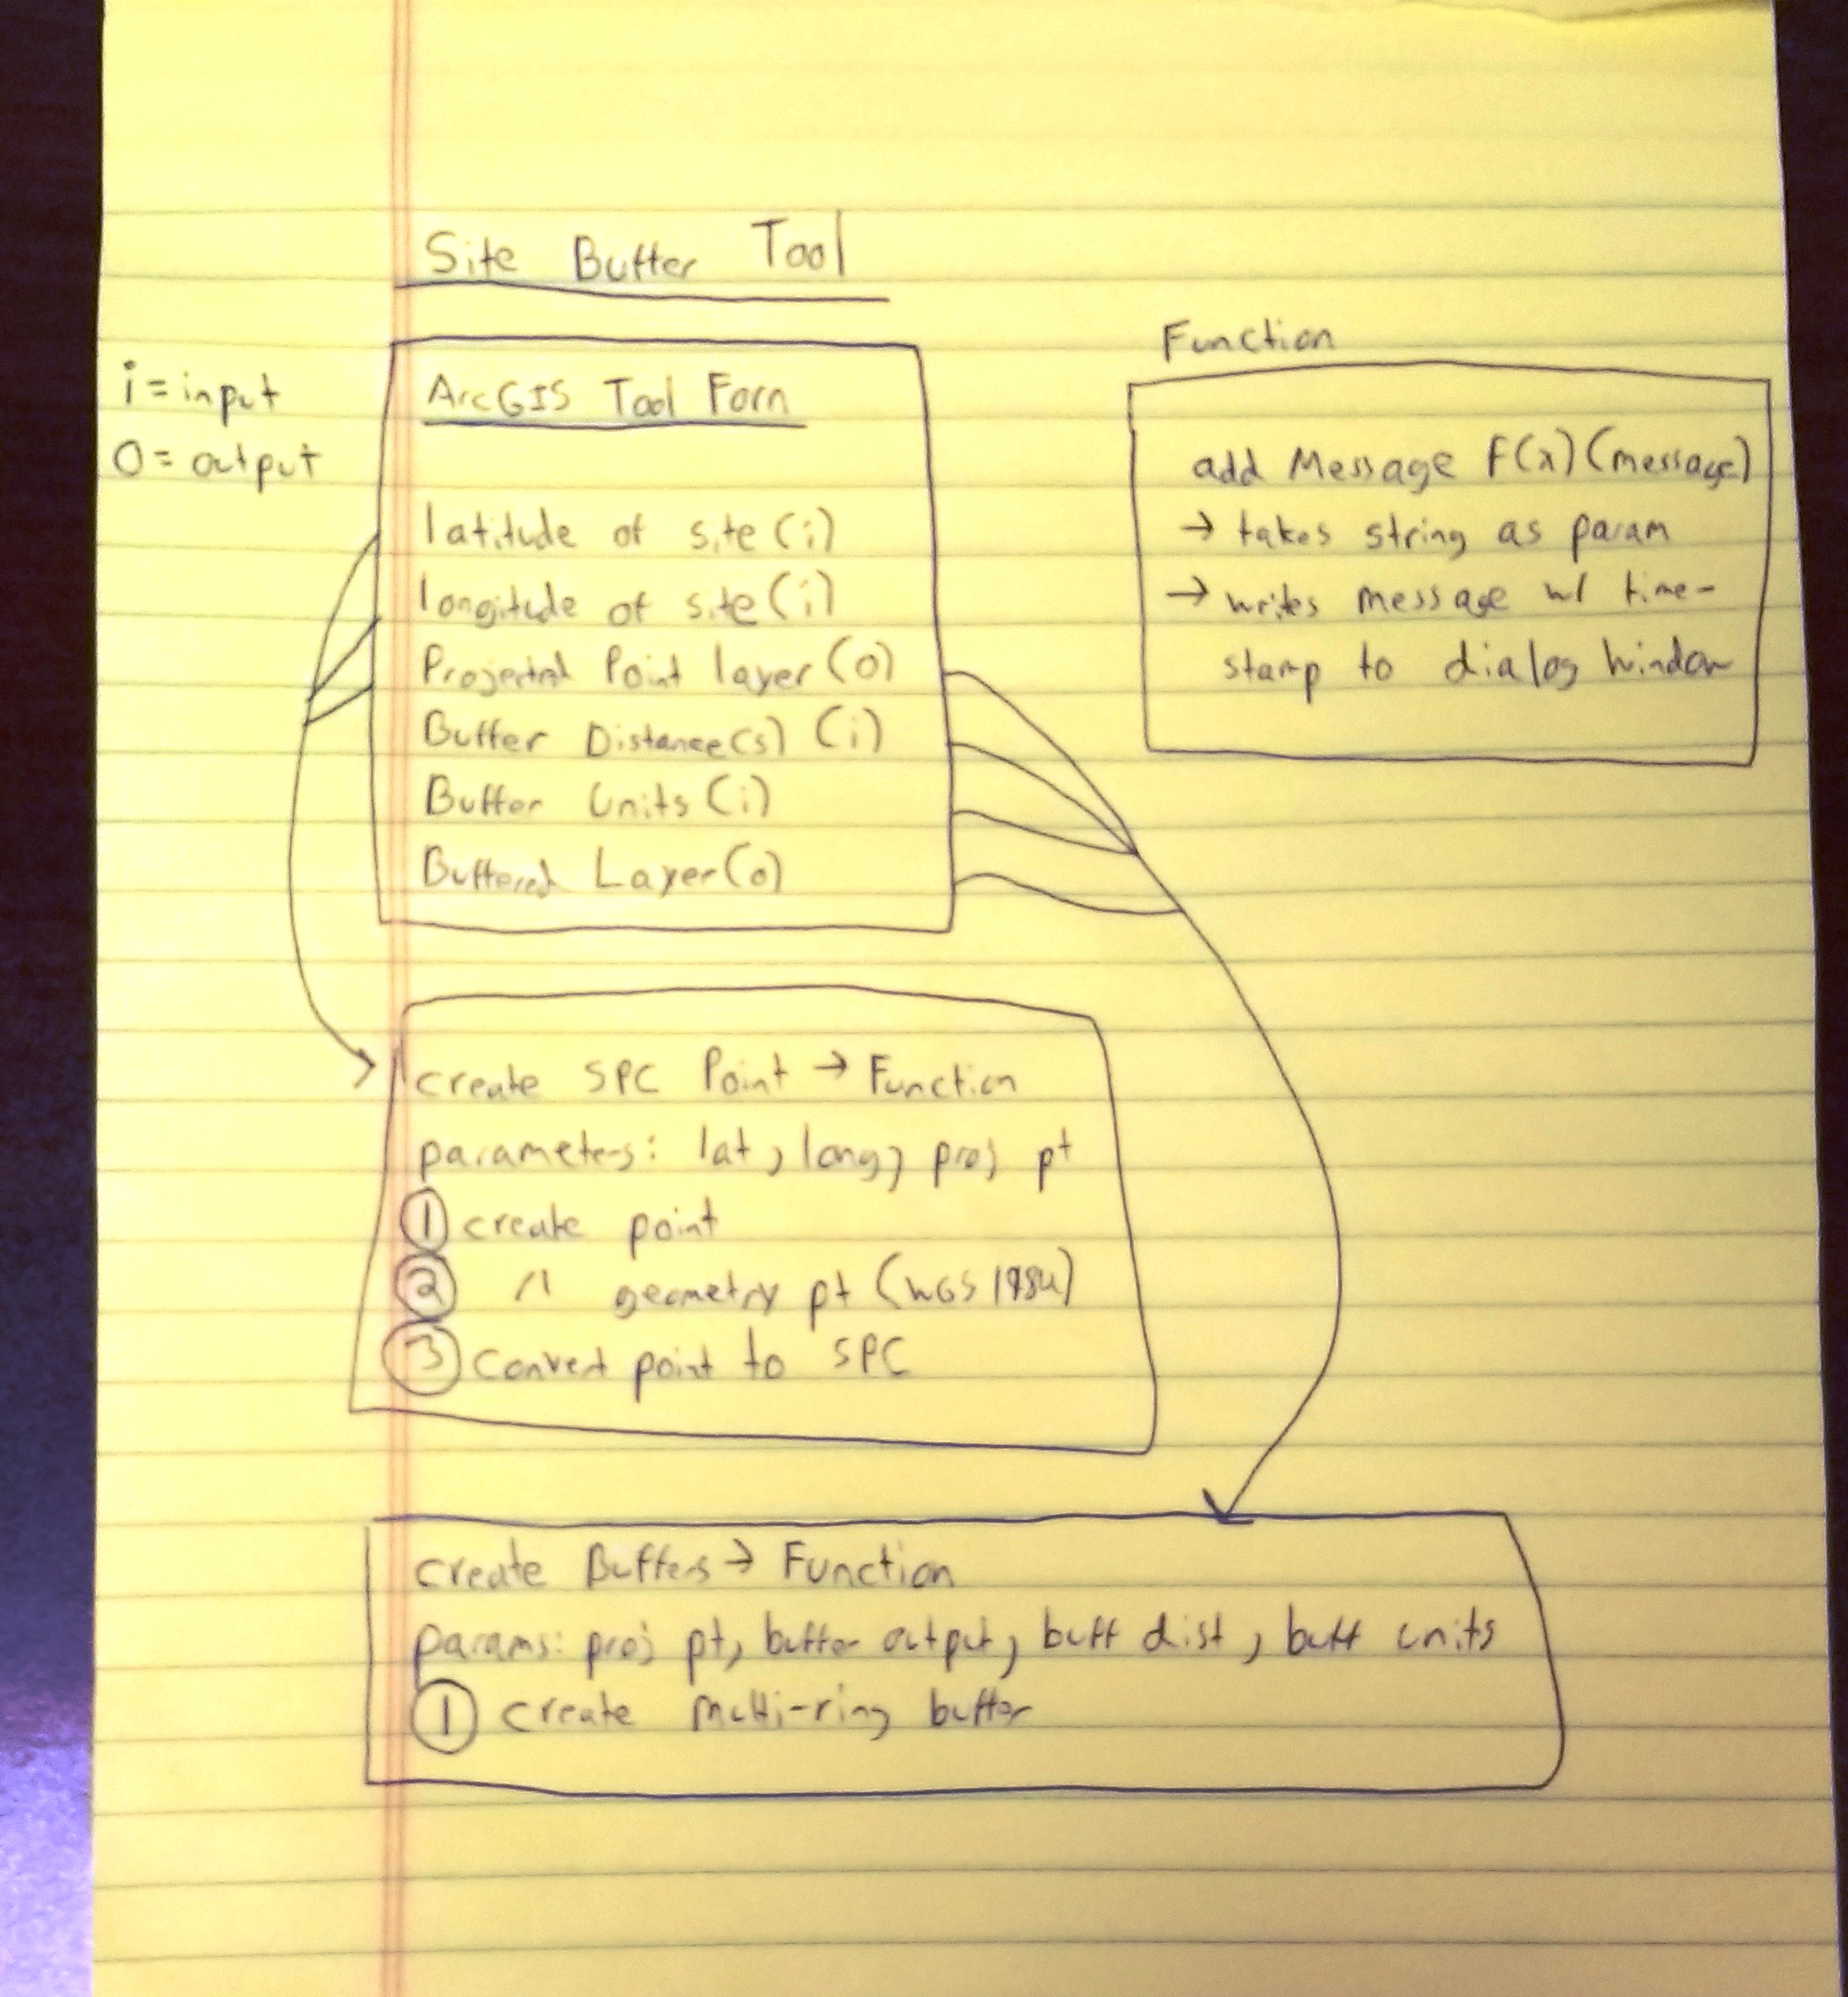 Site Buffer Tool
i = input
O = output
ArcGIS Tool Form
latitude of site (i)
longitude of site (i)
Projected Point layer (o)
Buffer Distance(s) (i)
Buffer Units (i)
Buffered Layer (o)
Function
add Message f(x) (message)
→ takes string as param
→ writes message w/ time-
stamp to dialog window
create SPC Point → Function
parameters: lat, long, proj pt
① create point
② " geometry pt (WGS 1984)
③ convert point to SPC
create Buffers → Function
params: proj pt, buffer output, buff dist, buff units
① create multi-ring buffer